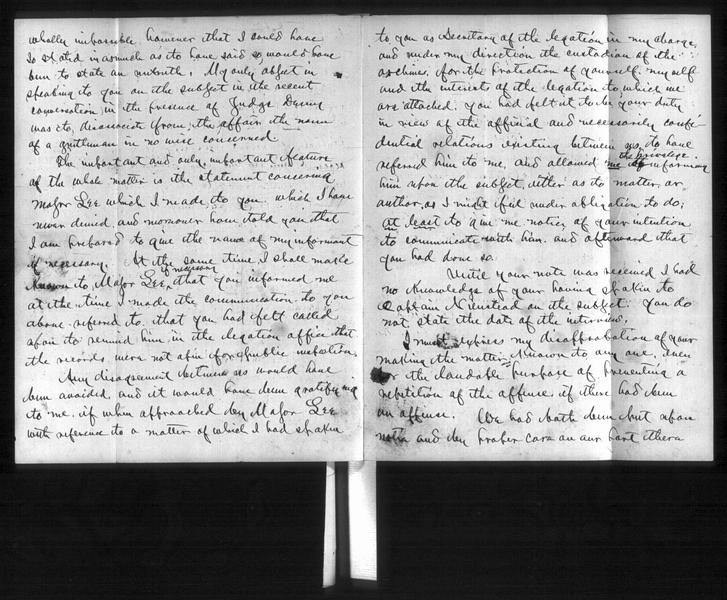 wholly impossible however that I could have
so stated in as much as to have said so, would have
been to state an untruth. My only object in
speaking to you on the subject in the recent
conversation in the presence of Judge Denny
was to, disassociate from the affair the name
of a gentleman in no wise concerned.
The important and only important feature
of the whole matter is the statement concerning
Major Lee which I made to you which I have
never denied, and moreover have told you that
I am prepared to give the name of my informant
if necessary. At the same time I shall make
known to Major Lee, if necessary that you informed me
at the time I made the communication to you
above referred to, that you had felt called
upon to remind him in the legation office that
the records were not open for public inspection.
Any disagreement between us would have
been avoided, and it would have been gratifying
to me, if when approached by Major Lee
with reference to a matter of which I had spoken
to you as Secretary of the legation in my charge,
and under my direction the custodian of the
archives, for the protection of yourself, myself
and the interest of the legation to which we
are attached, you had felt it to be your duty
in view of the official and necessarily confi
dential relations existing between us, to have
referred him to me, and allowed me the privilege of informing
him upon the subject either as to matter or
author, as I might feel under obligation to do;
at least to give me notice of your intention
to communicate with him, and afterward that
you had done so.
Until your note was received I had
no knowledge of your having spoken to
Captain Nienstead on the subject. You do
not state the date of the interview.
I must express my disapprobation of your
making the matter known to any one, even
for the laudable purpose of preventing a
repetition of the offense, if there had been
an offense. We had both been put upon
notice and by proper care on our part there